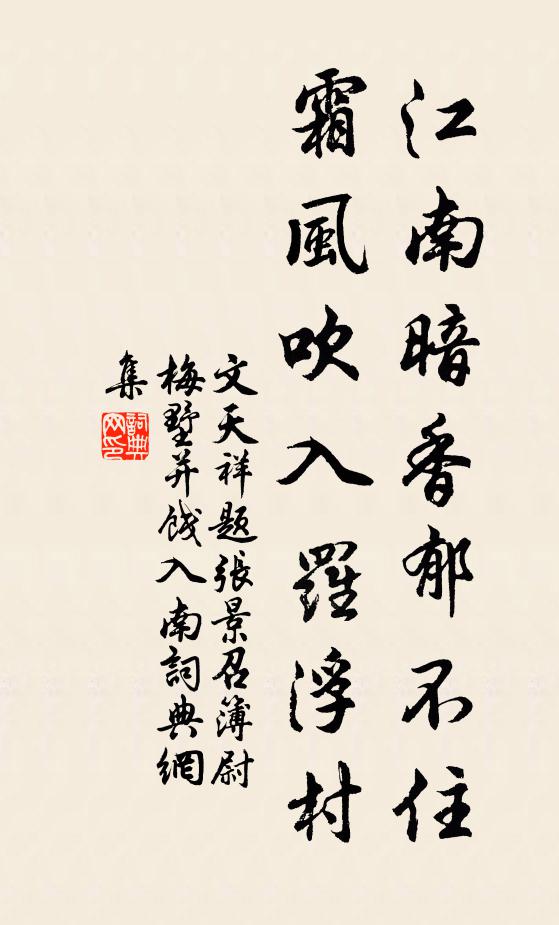 江南暗香郁不住
霜風吹入羅浮村
文天祥題張景召簿尉
梅墅并餞入南詞典網
集
詞典
网印